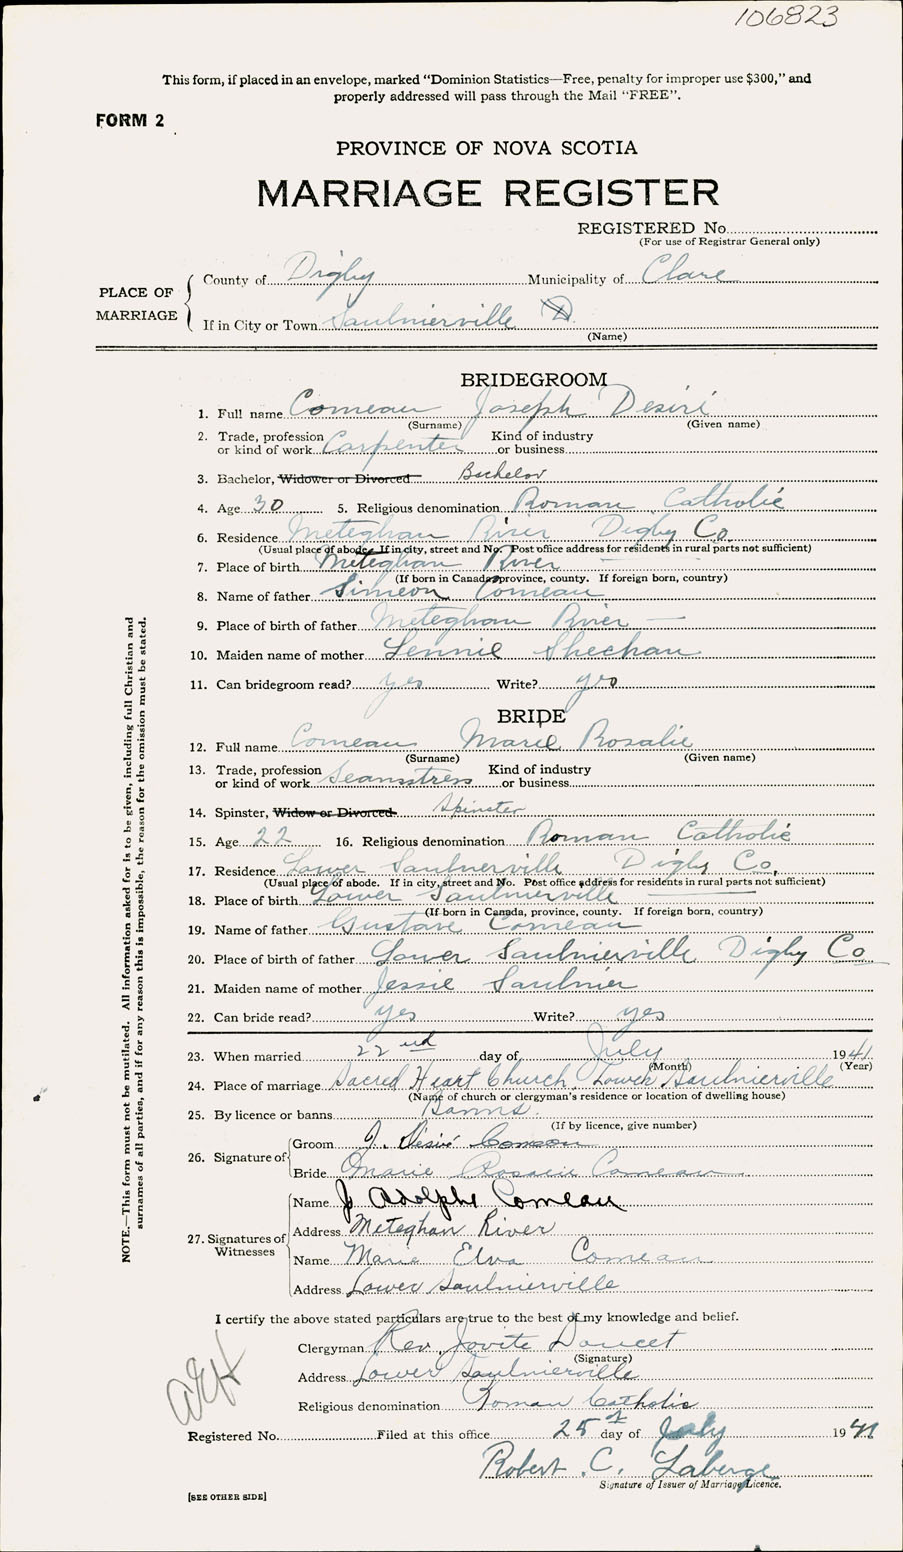 106823
This form, if placed in an envelope, marked “Dominion Statistics—Free, penalty for improper use $300,” and
properly addressed will pass through the Mail “FREE”.
FORM 2
PROVINCE OF NOVA SCOTIA
MARRIAGE REGISTER
REGISTERED No.
(For use of Registrar General only)
PLACE OF MARRIAGE
County of Digby Municipality of Clare
If in City or Town Saulnierville D
(Name)
BRIDEGROOM
1. Full name Comeau Joseph Desiré
(Surname) (Given name)
2. Trade, profession or kind of work Carpenter Kind of industry or business
3. Bachelor, Widower or Divorced Bachelor
4. Age 30 5. Religious denomination Roman Catholic
6. Residence Meteghan River Digby Co.
(Usual place of abode. If in city, street and No. Post office address for residents in rural parts not sufficient)
7. Place of birth Meteghan River
(If born in Canada, province, county. If foreign born, country)
8. Name of father Simeon Comeau
9. Place of birth of father Meteghan River
10. Maiden name of mother Lennie Sheehan
11. Can bridegroom read? yes Write? yes
BRIDE
12. Full name Comeau Marie Rosalie
(Surname) (Given name)
13. Trade, profession or kind of work Seamstress Kind of industry or business
14. Spinster, Widow or Divorced Spinster
15. Age 22 16. Religious denomination Roman Catholic
17. Residence Lower Saulnerville Digby Co.
(Usual place of abode. If in city, street and No. Post office address for residents in rural parts not sufficient)
18. Place of birth Lower Saulnierville
(If born in Canada, province, county. If foreign born, country)
19. Name of father Gustave Comeau
20. Place of birth of father Lower Saulnierville Digby Co
21. Maiden name of mother Jessie Saulnier
22. Can bride read? yes Write? yes
23. When married 22nd day of July 1941
(Month) (Year)
24. Place of marriage Sacred Heart Church, Lower Saulnierville
(Name of church or clergyman’s residence or location of dwelling house)
25. By licence or banns Banns.
(If by licence, give number)
26. Signature of
Groom J. Désiré Comeau
Bride Marie Rosalie Comeau
27. Signatures of Witnesses
Name J Adolphe Comeau
Address Meteghan River
Name Marie Elva Comeau
Address Lower Saulnierville
I certify the above stated particulars are true to the best of my knowledge and belief.
Clergyman Rev. Jovite Doucet
(Signature)
Address Lower Saulnierville
Religious denomination Roman Catholic
Registered No. Filed at this office 25th day of July 1941
Robert C. Laberge
Signature of Issuer of Marriage Licence.
[SEE OTHER SIDE]
NOTE.—This form must not be mutilated. All information asked for is to be given, including full Christian and
surnames of all parties, and if for any reason this is impossible, the reason for the omission must be stated.